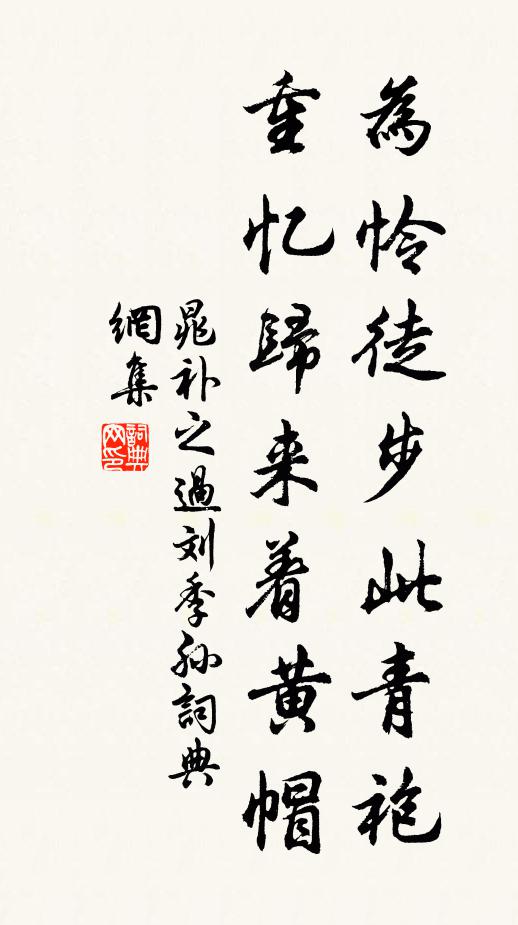 為怜徒步此青袍
重忆歸来着黄帽
晁补之過刘季孙詞典
網集
詞典
网印